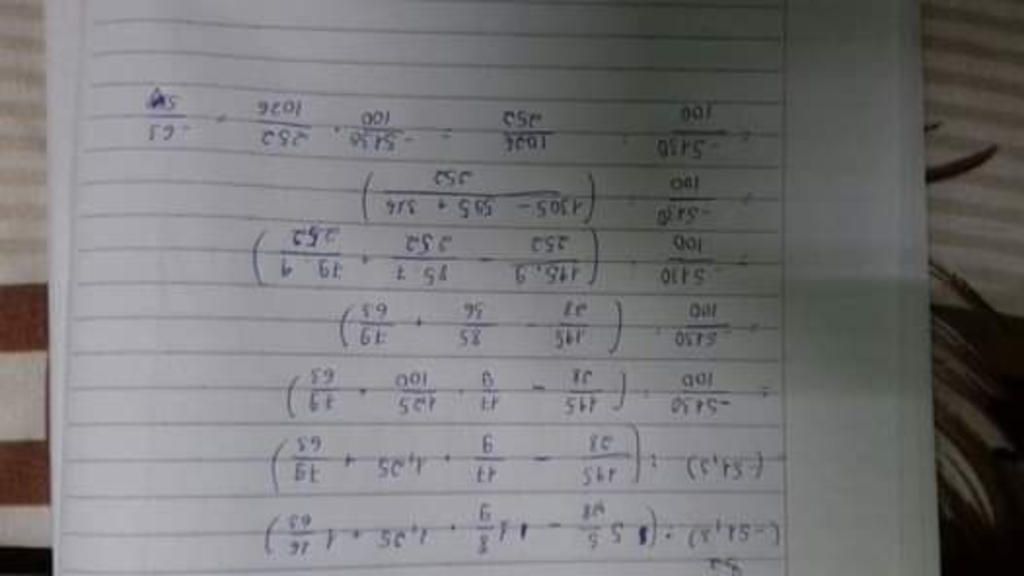 (-51,3) : (5 5/28 - 1 8/9 · 1,25 + 1 16/63)
(-51,3) : (145/28 - 17/9 · 1,25 + 79/63)
= -5130/100 : (145/28 - 17/9 · 125/100 + 79/63)
= -5130/100 : (145/28 - 85/36 + 79/63)
= -5130/100 : (145·9/252 - 85·7/252 + 79·4/252)
= -5130/100 : (1305 - 595 + 316/252)
= -5130/100 : 1026/252 = -5130/100 · 252/1026 = -63/5